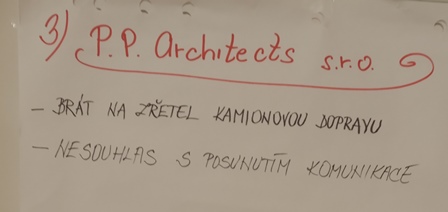 3) P.P. Architects s.r.o.
- BRÁT NA ZŘETEL KAMIONOVOU DOPRAVU
- NESOUHLAS S POSUNUTÍM KOMUNIKACE